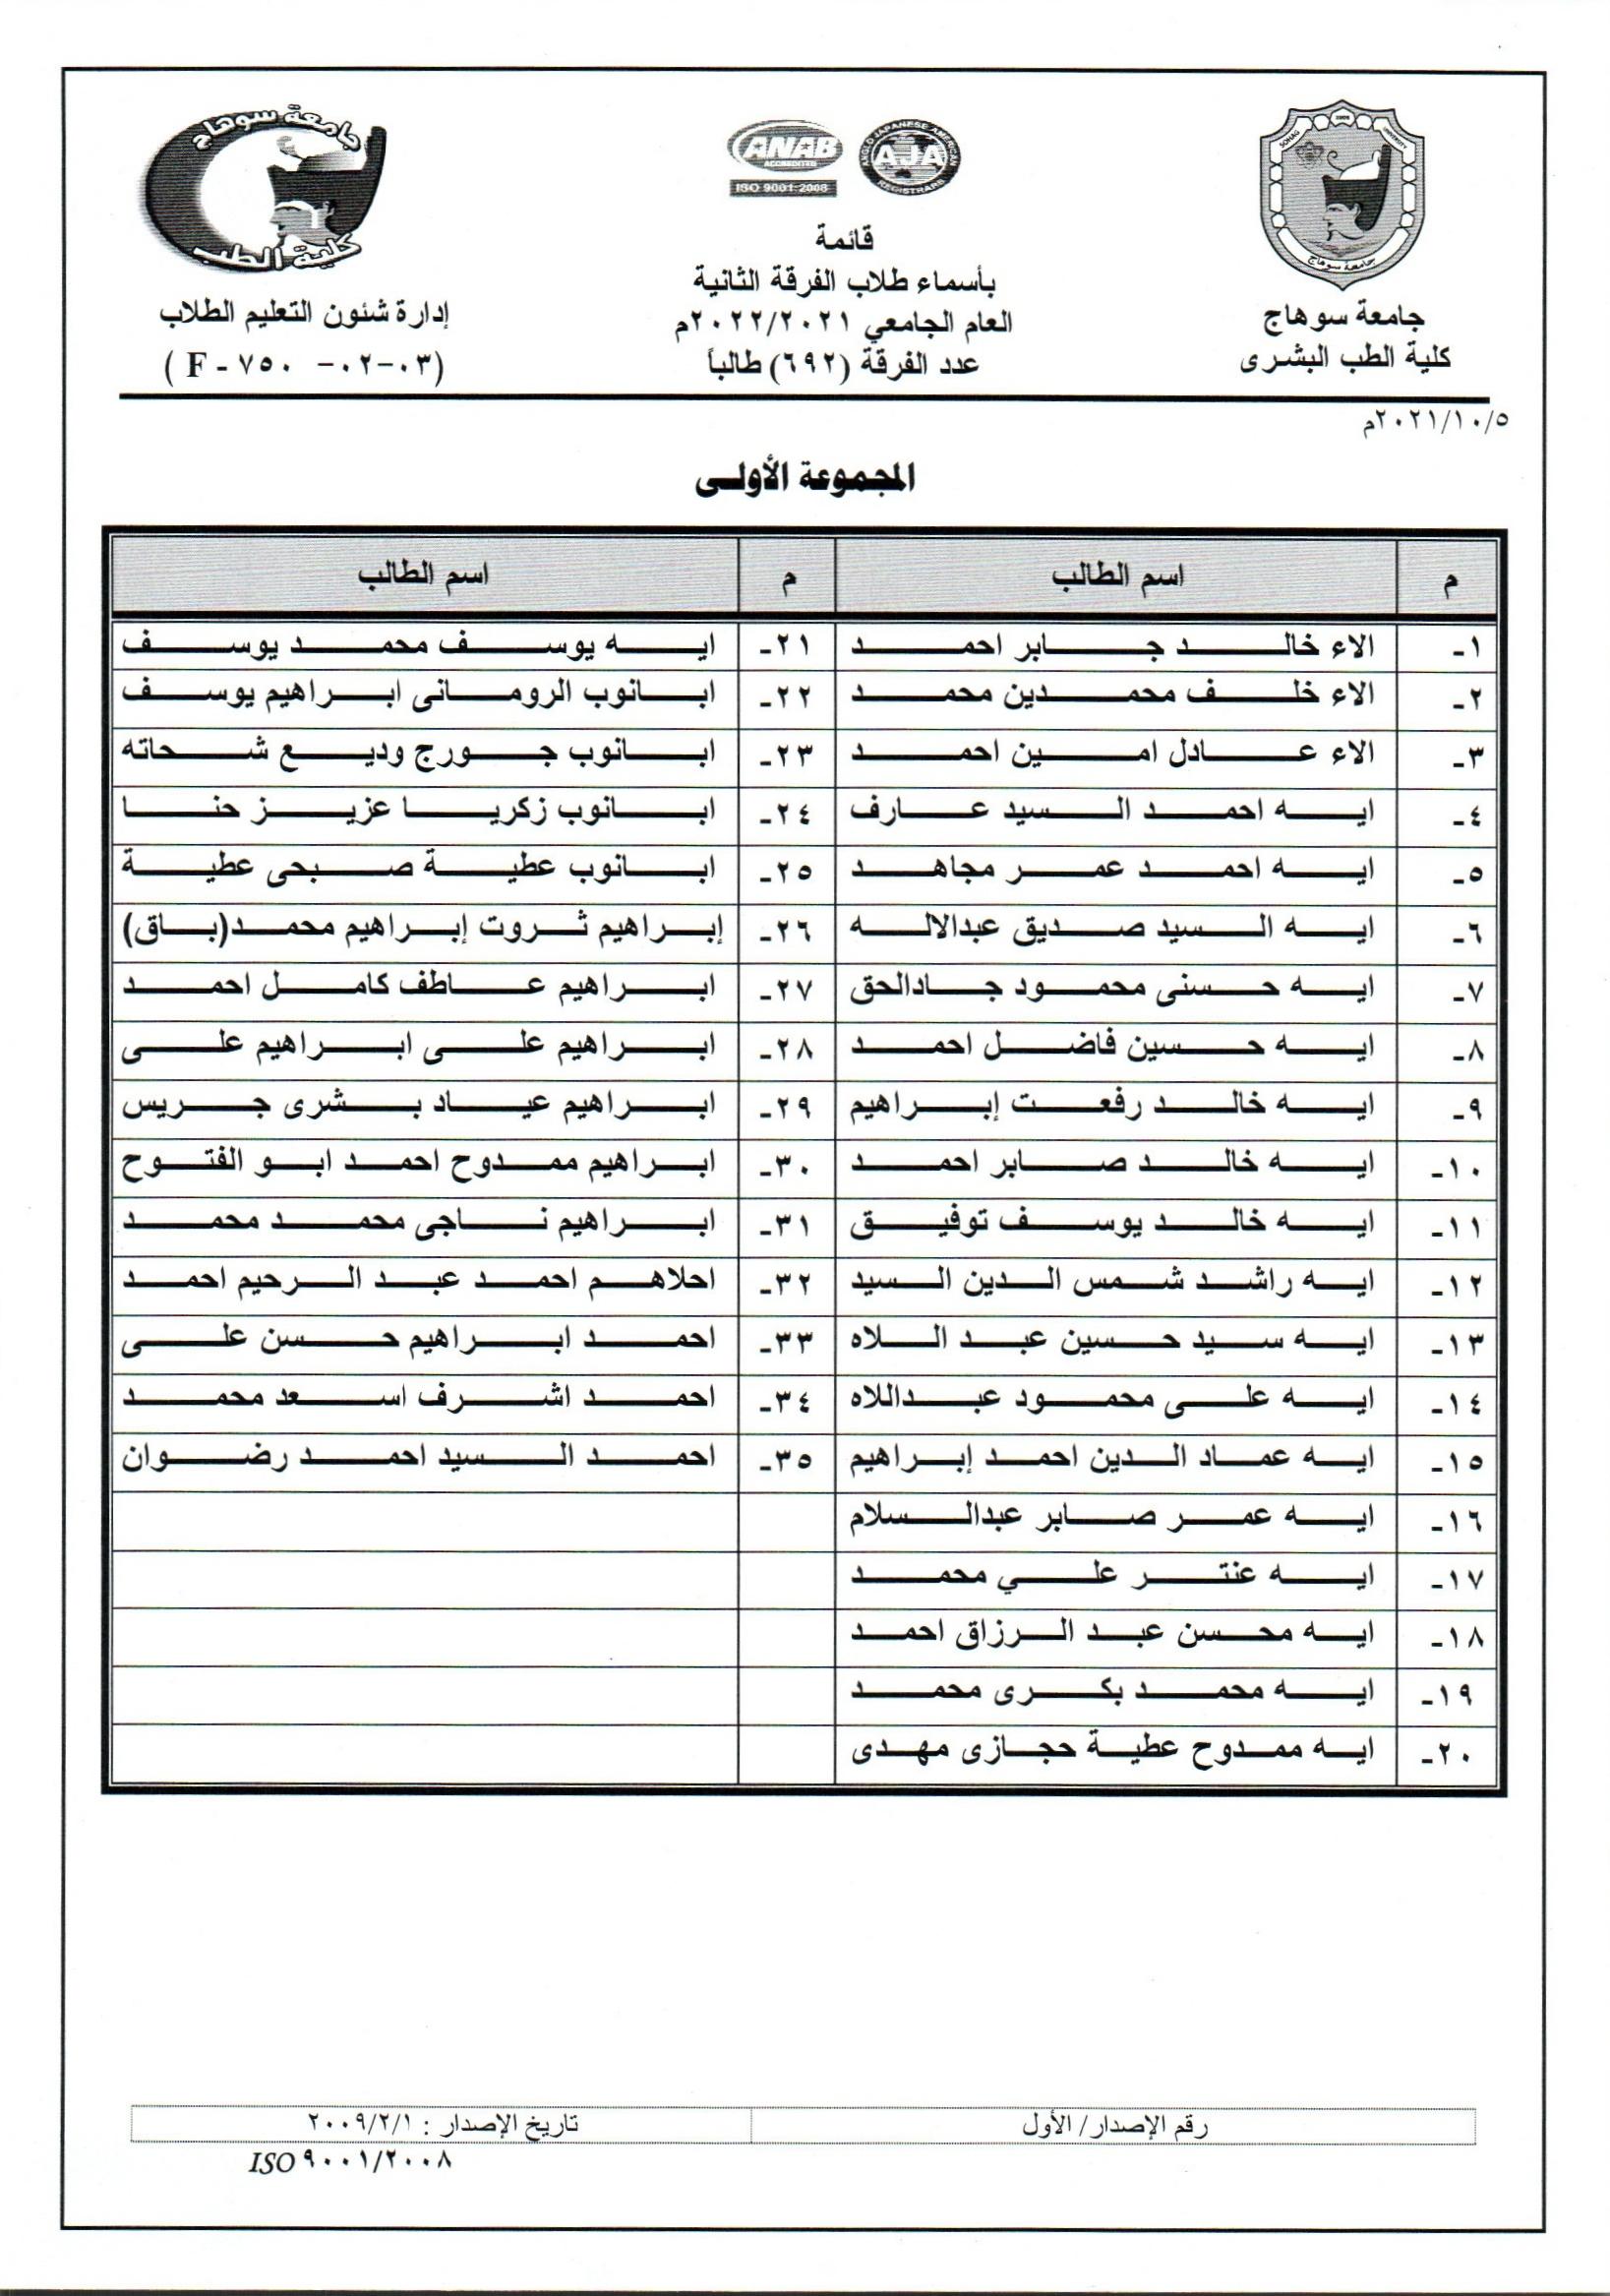 جامعة سوهاج
كلية الطب
ANAB
ACCREDITED
ISO 9001:2008
ANGLO JAPANESE AMERICAN
AJA
REGISTRARS
SOHAG UNIVERSITY
جامعة سوهاج
جامعة سوهاج
كلية الطب البشرى
قائمة
بأسماء طلاب الفرقة الثانية
العام الجامعي ٢٠٢٢/٢٠٢١م
عدد الفرقة (٦٩٢) طالباً
إدارة شئون التعليم الطلاب
(F - ٧٥٠ -٠٢-٠٣)
٢٠٢١/١٠/٥م
المجموعة الأولى
م اسم الطالب م اسم الطالب
١- الاء خالد جابر احمد ٢١- ايه يوسف محمد يوسف
٢- الاء خلف محمدين محمد ٢٢- ابانوب الرومانى ابراهيم يوسف
٣- الاء عادل امين احمد ٢٣- ابانوب جورج وديع شحاته
٤- ايه احمد السيد عارف ٢٤- ابانوب زكريا عزيز حنا
٥- ايه احمد عمر مجاهد ٢٥- ابانوب عطية صبحى عطية
٦- ايه السيد صديق عبدالاله ٢٦- إبراهيم ثروت إبراهيم محمد(باق)
٧- ايه حسنى محمود جادالحق ٢٧- ابراهيم عاطف كامل احمد
٨- ايه حسين فاضل احمد ٢٨- ابراهيم على ابراهيم على
٩- ايه خالد رفعت إبراهيم ٢٩- ابراهيم عياد بشرى جريس
١٠- ايه خالد صابر احمد ٣٠- ابراهيم ممدوح احمد ابو الفتوح
١١- ايه خالد يوسف توفيق ٣١- ابراهيم ناجى محمد محمد
١٢- ايه راشد شمس الدين السيد ٣٢- احلاهم احمد عبد الرحيم احمد
١٣- ايه سيد حسين عبد اللاه ٣٣- احمد ابراهيم حسن على
١٤- ايه على محمود عبداللاه ٣٤- احمد اشرف اسعد محمد
١٥- ايه عماد الدين احمد إبراهيم ٣٥- احمد السيد احمد رضوان
١٦- ايه عمر صابر عبدالسلام
١٧- ايه عنتر علي محمد
١٨- ايه محسن عبد الرزاق احمد
١٩- ايه محمد بكرى محمد
٢٠- ايه ممدوح عطية حجازى مهدى
رقم الإصدار/ الأول تاريخ الإصدار : ٢٠٠٩/٢/١
ISO ٩٠٠١/٢٠٠٨